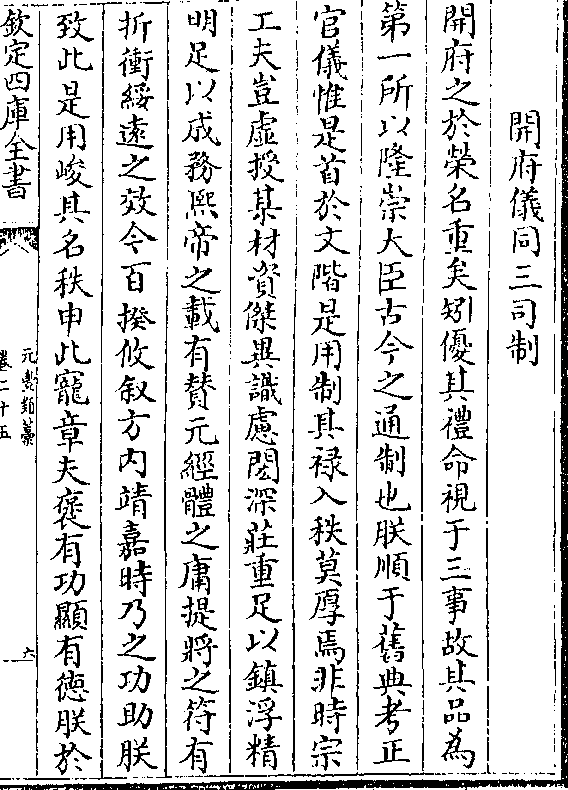 開府儀同三司制
開府之於榮名重矣矧優其禮命視于三事故其品為
第一所以隆崇大臣古今之通制也朕順于舊典考正
官儀惟是首於文階是用制其祿入秩莫厚焉非時宗
工夫豈虛授某材資傑異識慮閎深莊重足以鎮浮精
明足以成務熙帝之載有賛元經體之庸提將之符有
折衝綏遠之效今百揆攸叙方内靖嘉時乃之功助朕
致此是用峻其名秩申此寵章夫褒有功顯有德朕於
欽定四庫全書
元豐類藁
卷二十五
六